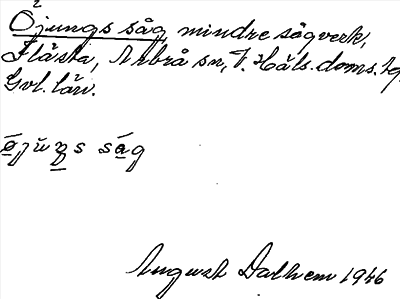 Öjungs såg, mindre sågverk,
Flästa, Arbrå sn, V. Häls. doms. hg
Gvl. län.
såg
August Dalhem 1946